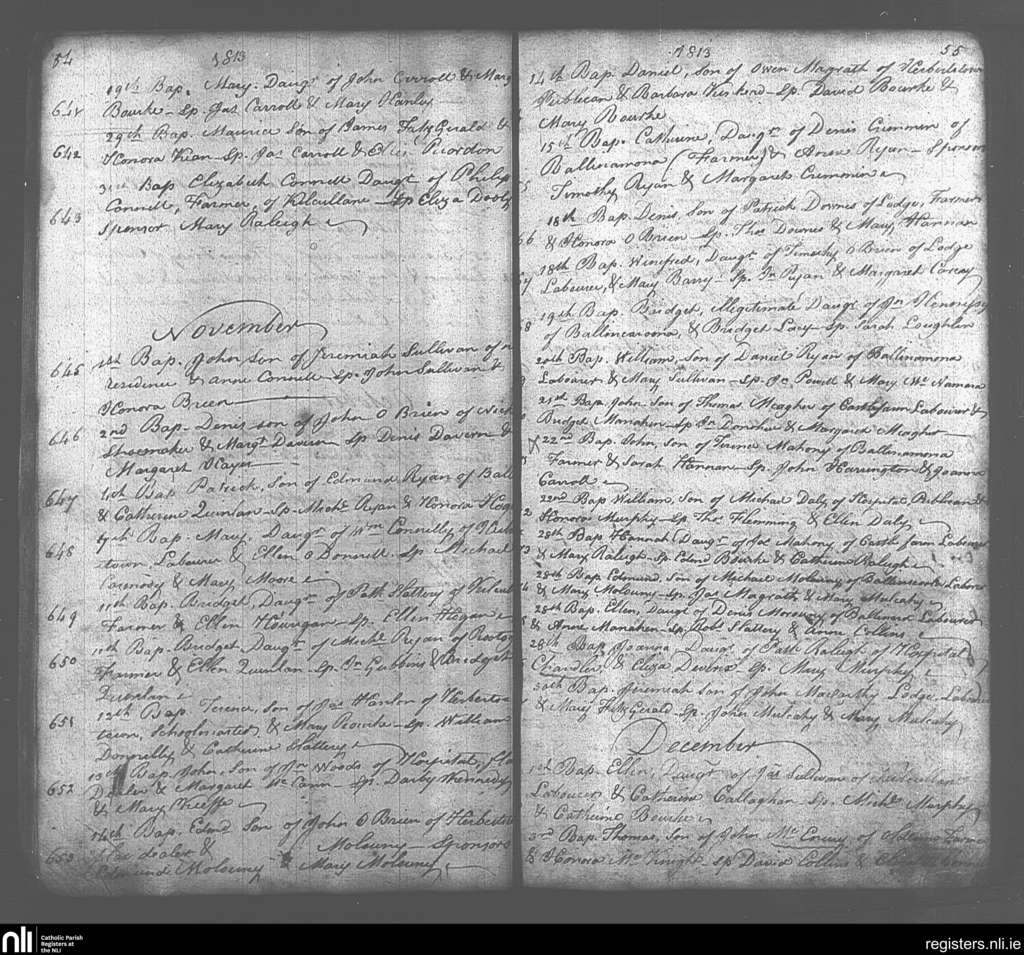 54
1813
19th Bap. Mary. Daugr. of John Carroll & Marg
641
Bourke - Sp. Jas Carroll & Mary Hanlon
29th Bap. Maurice Son of James FitzGerald &
642
Honora Kean - Sp. Jas Carroll & Ellis Riordon
31st Bap Elizabeth Connell Daugr. of Philip
Connell, Farmer, of Kilcullane - Sp Eliza Dooly
643
Sponsor Mary Raleigh
November
645
1st Bap. John Son of Jeremiah Sullivan of n
residence & Anne Connell - Sp. John Sullivan &
Honora Brien
646
2nd Bap. Denis son of John O Brien of
Shoemaker & Margt. Davern Sp Denis Davern &
Margaret Hayes
647
4th Bap Patrick, Son of Edmund Ryan of Ball
& Catherine Quinlan - Sp. Michl. Ryan & Honora
648
7th Bap. Mary. Daugr. of Wm Connelly of
town, Labourer & Ellen O Donnell - Sp Michael
& Mary Moore
649
11th Bap. Bridget, Daugr. of Patt Slattery of
Farmer & Ellen Hourigan - Sp. Ellen Hogan
650
11th Bap. Bridget Daugr. of Michl. Ryan of
Farmer & Ellen Quinlan - Sp. Jn. Gubbins & Bridget
Quinlan
651
12th Bap. Terence, Son of Jas Hanlon of Herberts
town, Schoolmaster, & Mary Rourke - Sp. William
Donnelly & Catherine Slattery
13th Bap. John, Son of Jn. Woods of Hospital,
652
Dealer & Margaret Mc Cann - Sp. Darby Kennedy
& Mary
14th Bap. Edmd Son of John O Brien of Herberts
653
Dealer & Molouny - Sponsors
Edmund Molouny & Mary Molouny
1813
55
14th Bap. Daniel, Son of Owen Magrath of Herbertstown
Publican & Barbara - Sp. David Bourke &
Mary Bourke
15th Bap. Catherine, Daugr. of Denis Crimmin of
Ballinamona (Farmer) & Anne Ryan - Sponsors
Timothy Ryan & Margaret Crimmin
18th Bap. Denis, Son of Patrick Downes of Lodge, Farmer
& Honora O Brien - Sp. Thos. Downes & Mary Hannan
18th Bap. Winifred, Daugr. of Timothy O Brien of Lodge
Labourer, & Mary Barry - Sp. Jn Ryan & Margaret Carey
19th Bap. Bridget, Illegitimate Daugr. of Jn. Hennessy
of & Bridget Lacy - Sp. Sarah Loughlin
20th Bap. William, Son of Daniel Ryan of Ballinamona
Labourer & Mary Sullivan - Sp. Powell & Mary Mc Namara
21st Bap. John, Son of Thomas Meagher of Castlefarm Labourer &
Bridget Monahan - Sp. Jn. Donohue & Margaret Meagher
22nd Bap. John, Son of Mahony of Ballinamona
Farmer & Sarah Hannan - Sp. John Harrington & Joanna
Carroll
22nd Bap William, Son of Michael Daly of Hospital, Publican &
Honora Murphy - Sp Thos. Flemming & Ellen Daly
28th Bap Hannah Daugr. of Jas Mahony of Castle farm Labourer
& Mary Raleigh - Sp Edmd Bourke & Catherine Raleigh
28th Bap Edmund, Son of Michael Molouny of Labourer
& Mary Molouny - Sp. Jas Magrath & Mary Mulcahy
28th Bap. Ellen, Daugr. of Denis of Labourer
& Anne Monahan - Sp. Robt Slattery & Anne Collins
28th Bap Joanna, Daugr. of Patt Raleigh of Hospital
Chandler, & Eliza Devine Sp. Mary Murphy
30th Bap. Jeremiah Son of John MacCarthy Lodge. Labourer
& Mary FitzGerald - Sp. John Mulcahy & Mary Mulcahy
December
1st Bap. Ellen, Daugr. of Jas Sullivan of Kilcullane
Labourer & Catherine Callaghan Sp. Michl. Murphy
& Catherine Bourke
3rd Bap. Thomas, Son of John of Farmer
& Honora Mc Knight - Sp David Collins &
nli
Catholic Parish
Registers at
the NLI
registers.nli.ie